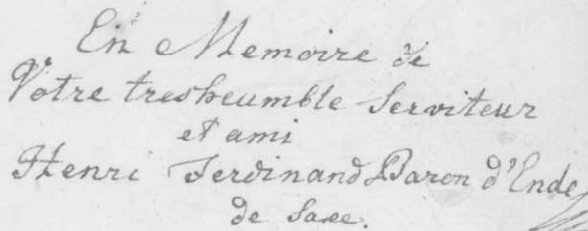 En Memoire de
Votre tresheumble Serviteur
et ami
Henri Ferdinand Baron d'Ende
de Saxe.